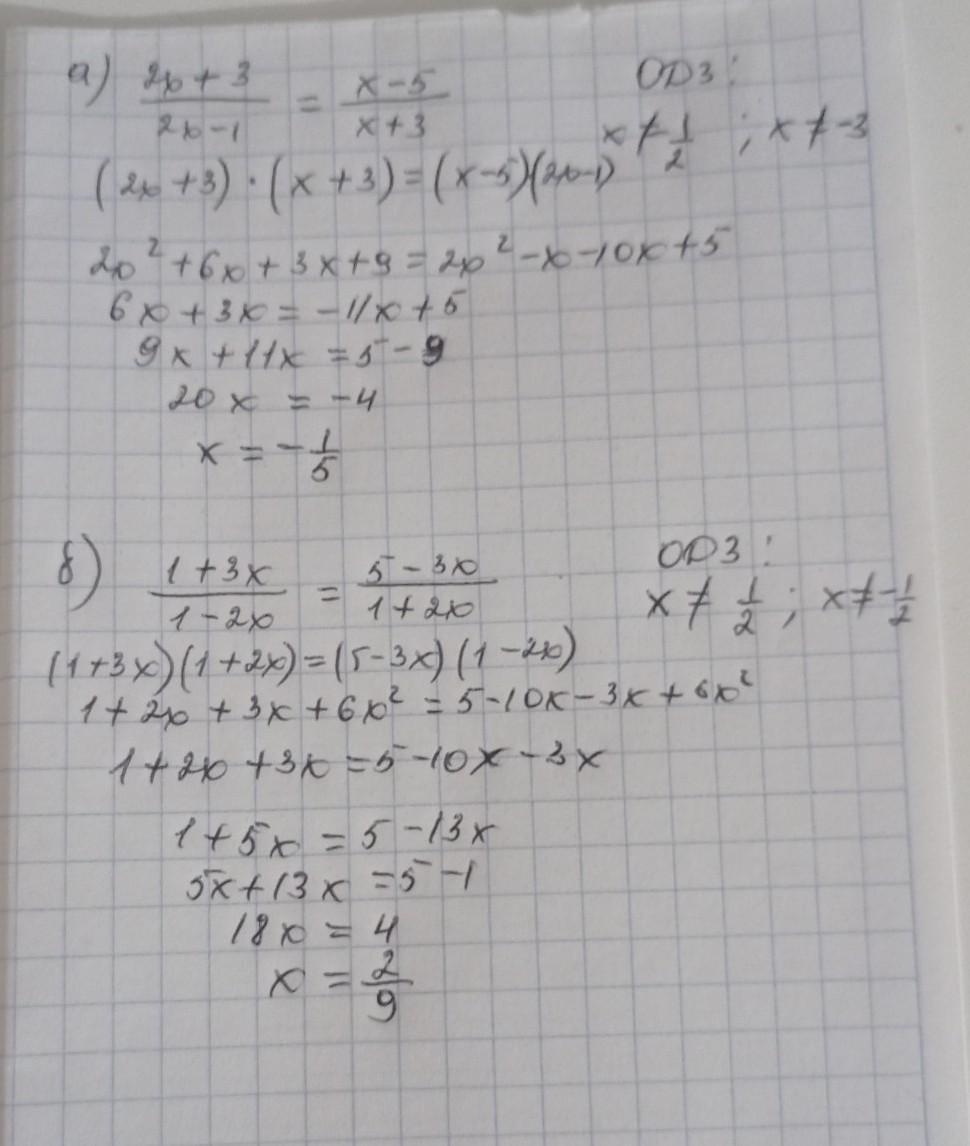 а) (2x + 3)/(2x - 1) = (x - 5)/(x + 3) ОДЗ:
x ≠ 1/2 ; x ≠ -3
(2x + 3) · (x + 3) = (x - 5)(2x - 1)
2x² + 6x + 3x + 9 = 2x² - x - 10x + 5
6x + 3x = -11x + 5
9x + 11x = 5 - 9
20x = -4
x = -1/5
б) (1 + 3x)/(1 - 2x) = (5 - 3x)/(1 + 2x) ОДЗ:
x ≠ 1/2 ; x ≠ -1/2
(1 + 3x)(1 + 2x) = (5 - 3x)(1 - 2x)
1 + 2x + 3x + 6x² = 5 - 10x - 3x + 6x²
1 + 2x + 3x = 5 - 10x - 3x
1 + 5x = 5 - 13x
5x + 13x = 5 - 1
18x = 4
x = 2/9